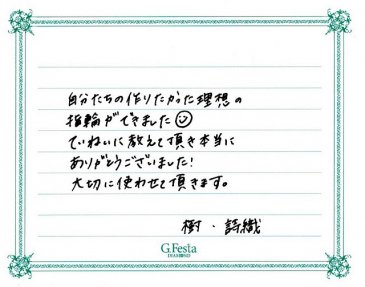 自分たちの作りたかった理想の
指輪ができました
ていねいに教えて頂き本当に
ありがとうございました!
大切に使わせて頂きます。
樹・詩織
G.Festa
DIAMOND